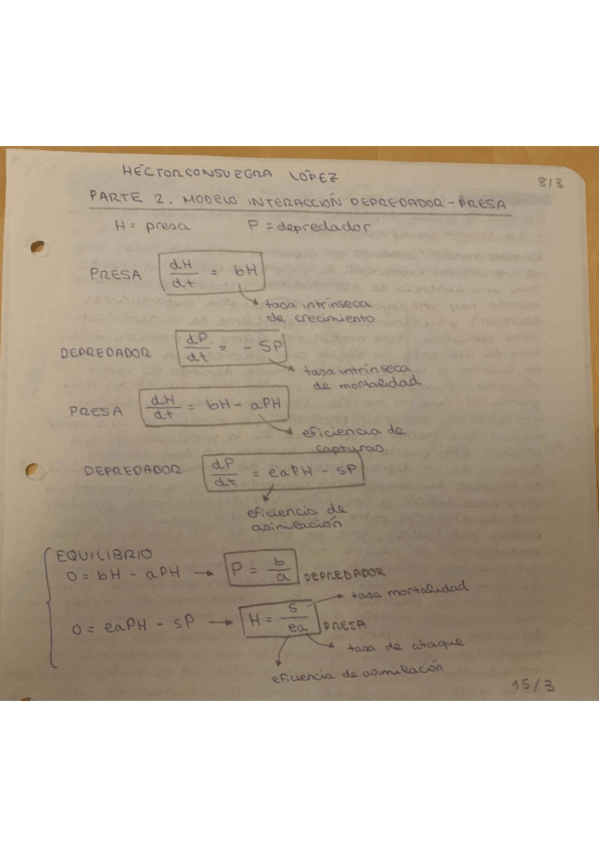 HÉCTOR CONSUEGRA LÓPEZ
8/3
PARTE 2. MODELO INTERACCIÓN DEPREDADOR-PRESA
H = presa P = depredador
PRESA dH/dt = bH
tasa intrínseca
de crecimiento
DEPREDADOR dP/dt = - sP
tasa intrínseca
de mortalidad
PRESA dH/dt = bH - aPH
eficiencia de
capturas
DEPREDADOR dP/dt = eaPH - sP
eficiencia de
asimilación
EQUILIBRIO
0 = bH - aPH → P = b/a DEPREDADOR
tasa mortalidad
0 = eaPH - sP → H = s/ea PRESA
tasa de ataque
eficiencia de asimilación
15/3